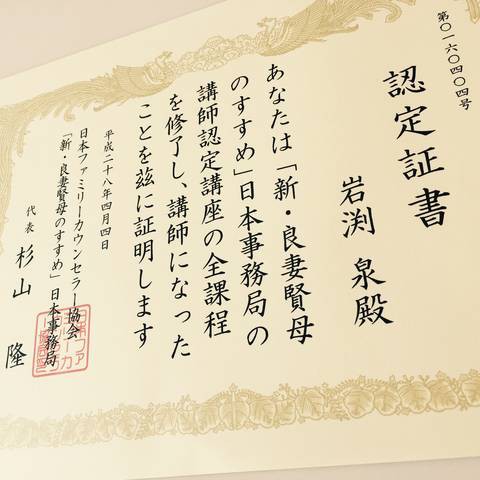 第〇一六〇四〇四号
認定証書
岩渕 泉殿
あなたは「新・良妻賢母
のすすめ」日本事務局の
講師認定講座の全課程
を修了し、講師になった
ことを茲に証明します
平成二十八年四月四日
日本ファミリーカウンセラー協会
「新・良妻賢母のすすめ」日本事務局
代表 杉山 隆